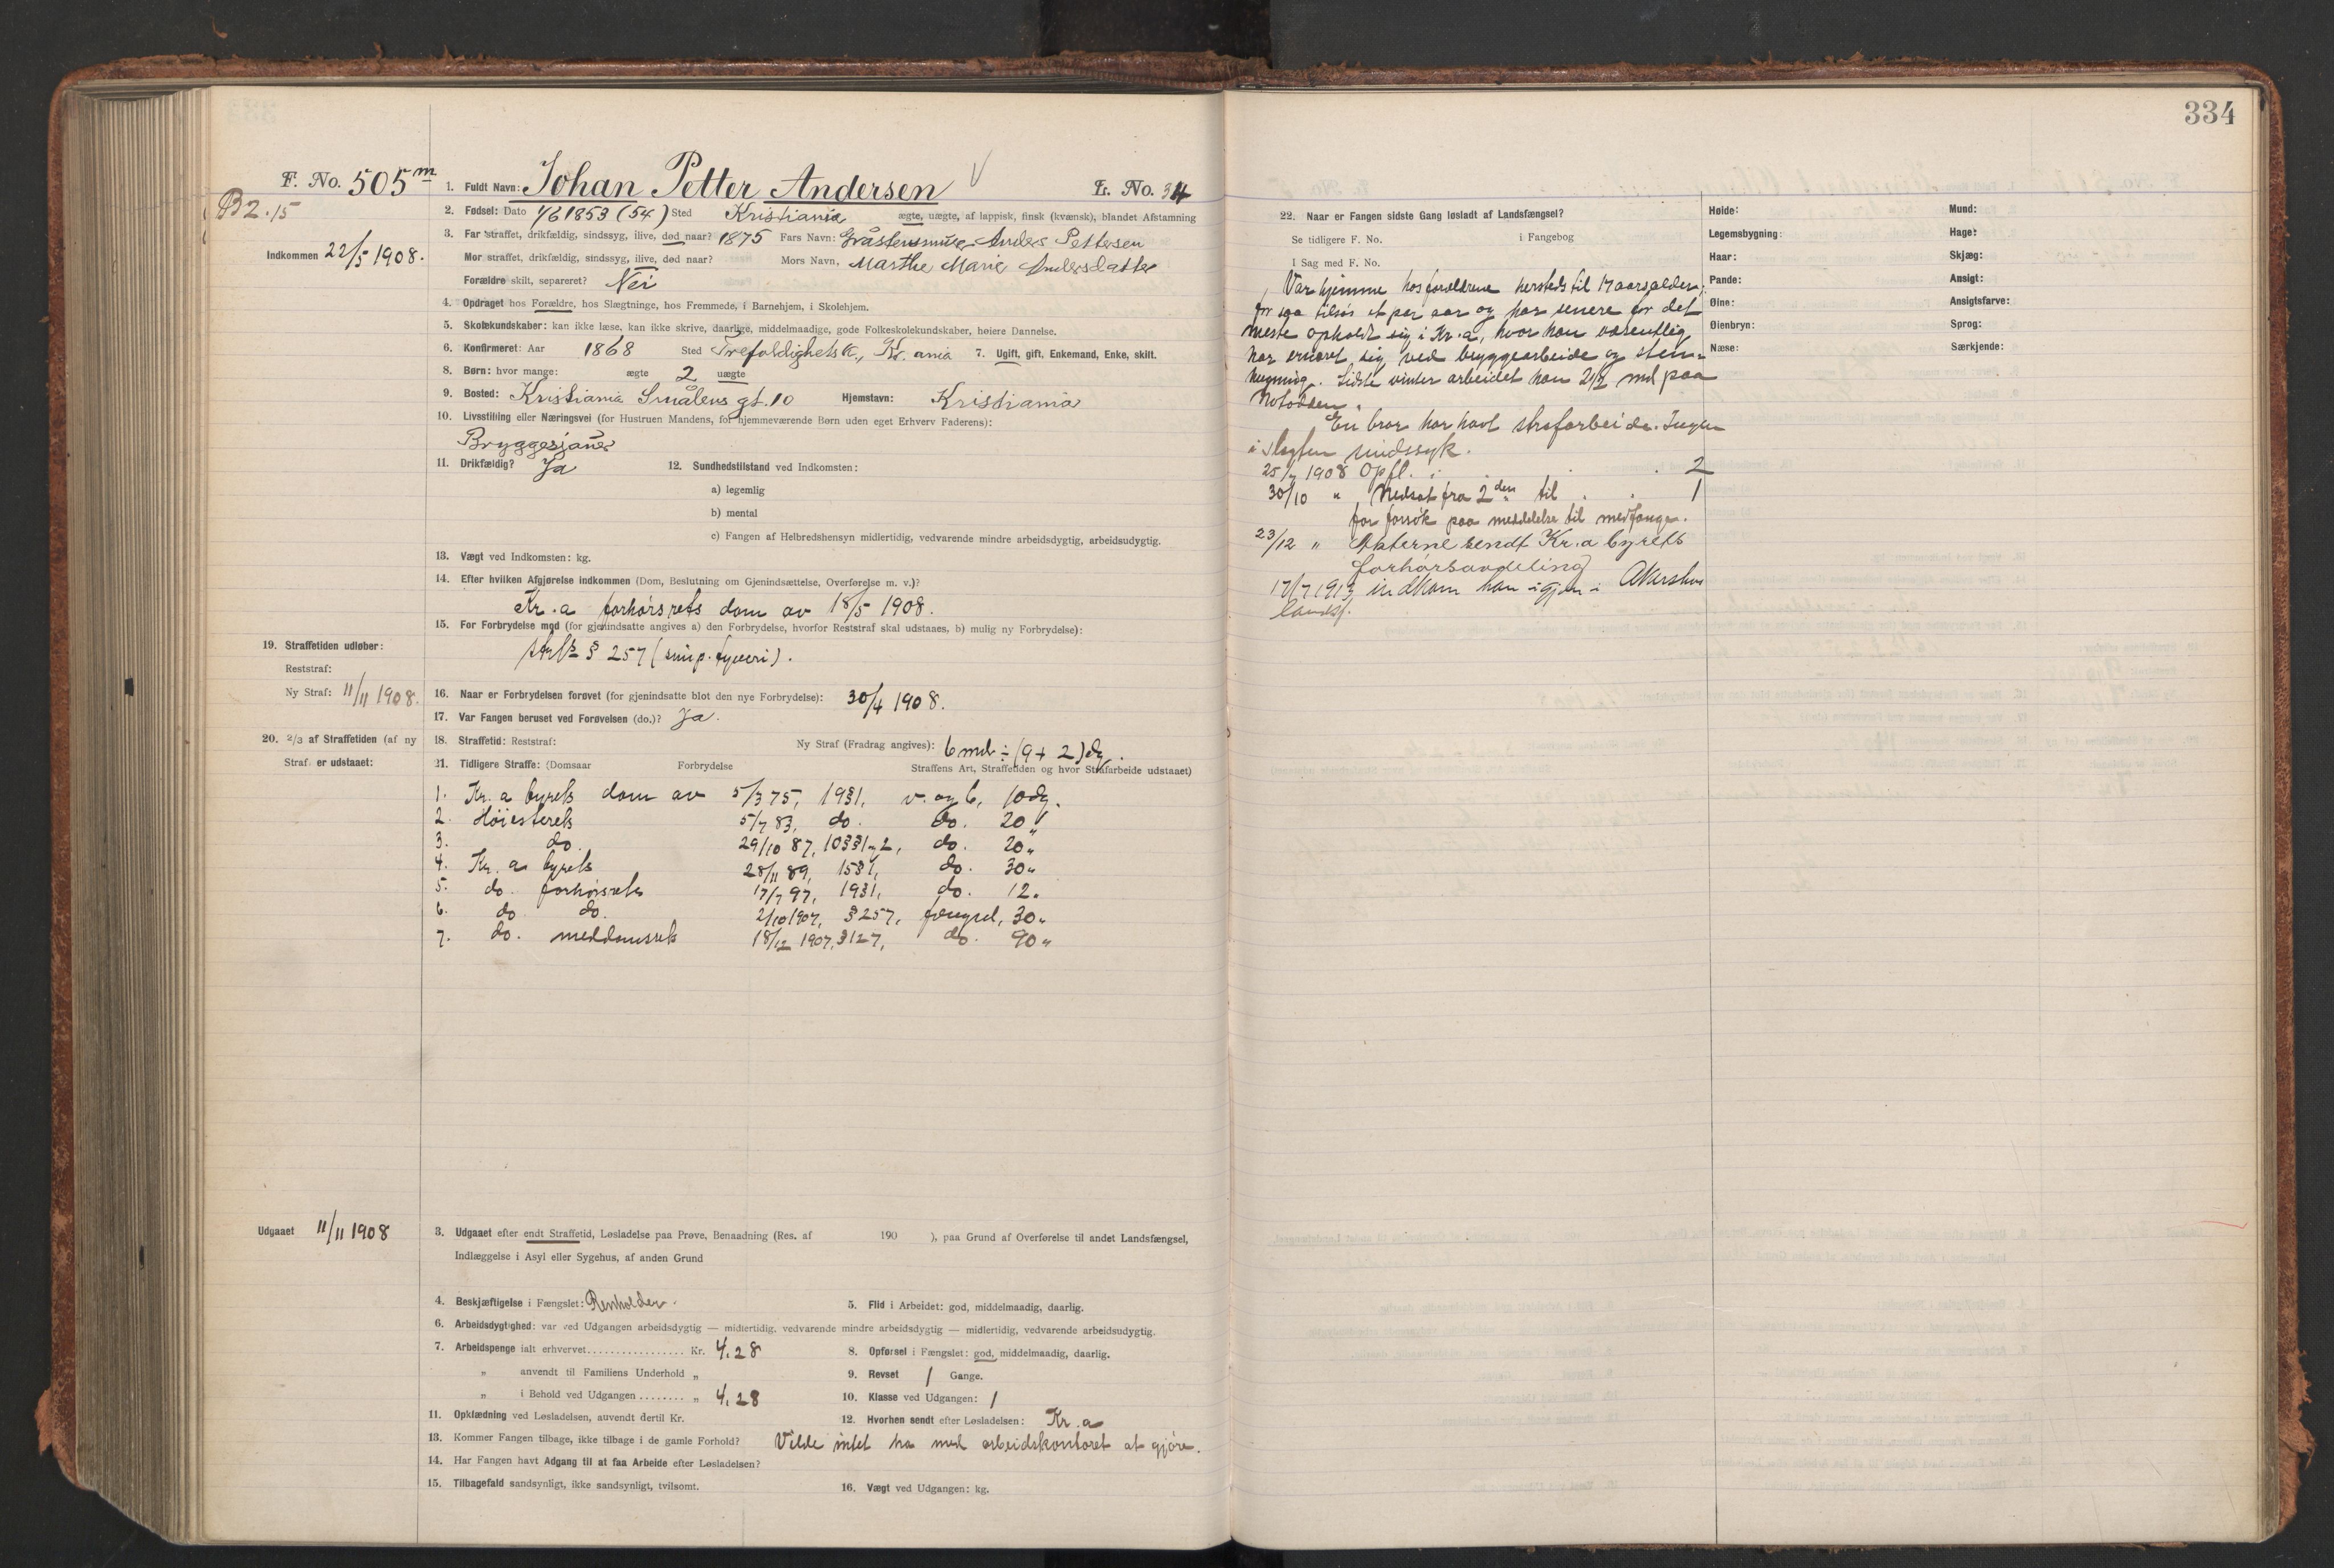 334
F. No. 505 m
B 2.15
Indkommen 22/5 1908.
1. Fuldt Navn: Johan Petter Andersen V
L. No.
2. Fødsel: Dato 1/6 1853 (54) Sted Kristiania ægte, uægte, af lappisk, finsk (kvænsk), blandet Afstamning
3. Far straffet, drikfældig, sindssyg, ilive, død naar? 1875 Fars Navn: Gråstensmurer Anders Pettersen
Mor straffet, drikfældig, sindssyg, ilive, død naar? Mors Navn, Marthe Marie Andersdatter
Forældre skilt, separeret? Nei
4. Opdraget hos Forældre, hos Slægtninge, hos Fremmede, i Barnehjem, i Skolehjem.
5. Skolekundskaber: kan ikke læse, kan ikke skrive, daarlige, middelmaadige, gode Folkeskolekundskaber, høiere Dannelse.
6. Konfirmeret: Aar 1868 Sted Trefoldighets k., Kr. ania 7. Ugift, gift, Enkemand, Enke, skilt.
8. Børn: hvor mange: ægte 2 uægte
9. Bosted: Kristiania Smålens gt. 10 Hjemstavn: Kristiania
10. Livsstilling eller Næringsvei (for Hustruen Mandens, for hjemmeværende Børn uden eget Erhverv Faderens):
Bryggesjauer
11. Drikfældig? Ja 12. Sundhedstilstand ved Indkomsten:
a) legemlig
b) mental
c) Fangen af Helbredshensyn midlertidig, vedvarende mindre arbeidsdygtig, arbeidsudygtig.
13. Vægt ved Indkomsten: kg.
14. Efter hvilken Afgjørelse indkommen (Dom, Beslutning om Gjenindsættelse, Overførelse m. v.)?
Kr.a forhørsrets dom av 18/5 1908.
15. For Forbrydelse mod (for gjenindsatte angives a) den Forbrydelse, hvorfor Reststraf skal udstaaes, b) mulig ny Forbrydelse):
§ 257 (simp. tyveri).
19. Straffetiden udløber:
Reststraf:
Ny Straf: 11/11 1908.
16. Naar er Forbrydelsen forøvet (for gjenindsatte blot den nye Forbrydelse): 30/4 1908.
17. Var Fangen beruset ved Forøvelsen (do.)? Ja.
20. 2/3 af Straffetiden (af ny
Straf) er udstaaet:
18. Straffetid: Reststraf: Ny Straf (Fradrag angives): 6 md ÷ (9 + 2) dg.
21. Tidligere Straffe: (Domsaar Forbrydelse Straffens Art, Straffetiden og hvor Strafarbeide udstaaet)
1. Kr. a byrets dom av 5/3 75, 19§1, v. og b, 10 dg.
2. Høiesterets 5/7 83, do. do. 20 "
3. do. 29/10 87, do. 20 "
4. Kr. a byrets 28/11 89, 15§1, do. 30 "
5. do. forhørsrets 17/7 97, 19§1, do. 12 "
6. do do. 2/10 1907, § 257, fængsel, 30 "
7. do. meddomsrets 18/12 1907, § 127, do. 90 "
Udgaaet 11/11 1908
3. Udgaaet efter endt Straffetid, Løsladelse paa Prøve, Benaadning (Res. af 190 ), paa Grund af Overførelse til andet Landsfængsel,
Indlæggelse i Asyl eller Sygehus, af anden Grund
4. Beskjæftigelse i Fængslet: Renholder. 5. Flid i Arbeidet: god, middelmaadig, daarlig.
6. Arbeidsdygtighed: var ved Udgangen arbeidsdygtig — midlertidig, vedvarende mindre arbeidsdygtig — midlertidig, vedvarende arbeidsudygtig.
7. Arbeidspenge ialt erhvervet................. Kr. 4,28 8. Opførsel i Fængslet: god, middelmaadig, daarlig.
" anvendt til Familiens Underhold " 9. Revset 1 Gange.
" i Behold ved Udgangen ........ " 4,28 10. Klasse ved Udgangen: 1
11. Opklædning ved Løsladelsen, anvendt dertil Kr. 12. Hvorhen sendt efter Løsladelsen: Kr. a
13. Kommer Fangen tilbage, ikke tilbage i de gamle Forhold? Vilde intet ha med arbeidskontoret at gjøre.
14. Har Fangen havt Adgang til at faa Arbeide efter Løsladelsen?
15. Tilbagefald sandsynligt, ikke sandsynligt, tvilsomt. 16. Vægt ved Udgangen: kg.
22. Naar er Fangen sidste Gang løsladt af Landsfængsel?
Se tidligere F. No. i Fangebog
I Sag med F. No.
Var hjemme hos forældrene hersteds til 17 aarsalderen,
for saa tilsjøs et par aar og har senere for det
meste opholdt sig i Kr.a, hvor han væsentlig
har ernæret sig ved bryggearbeide og sten-
hugning. Sidste vinter arbeidet han 2 1/2 md paa
Notodden.
En bror har havt strafarbeide. Ingen
i slegten sindssyk.
25/7 1908 Opfl. i . . 2
30/10 " Nedsat fra 2 den til . . 1
for forsøk paa meddelelse til medfange.
23/12 " Akterne sendt Kr.a byrets
forhørsavdeling
17/7 1913 indkom han igjen i Akershus
landsf.
Høide: Mund:
Legemsbygning: Hage:
Haar: Skjæg:
Pande: Ansigt:
Øine: Ansigtsfarve:
Øienbryn: Sprog:
Næse: Særkjende: